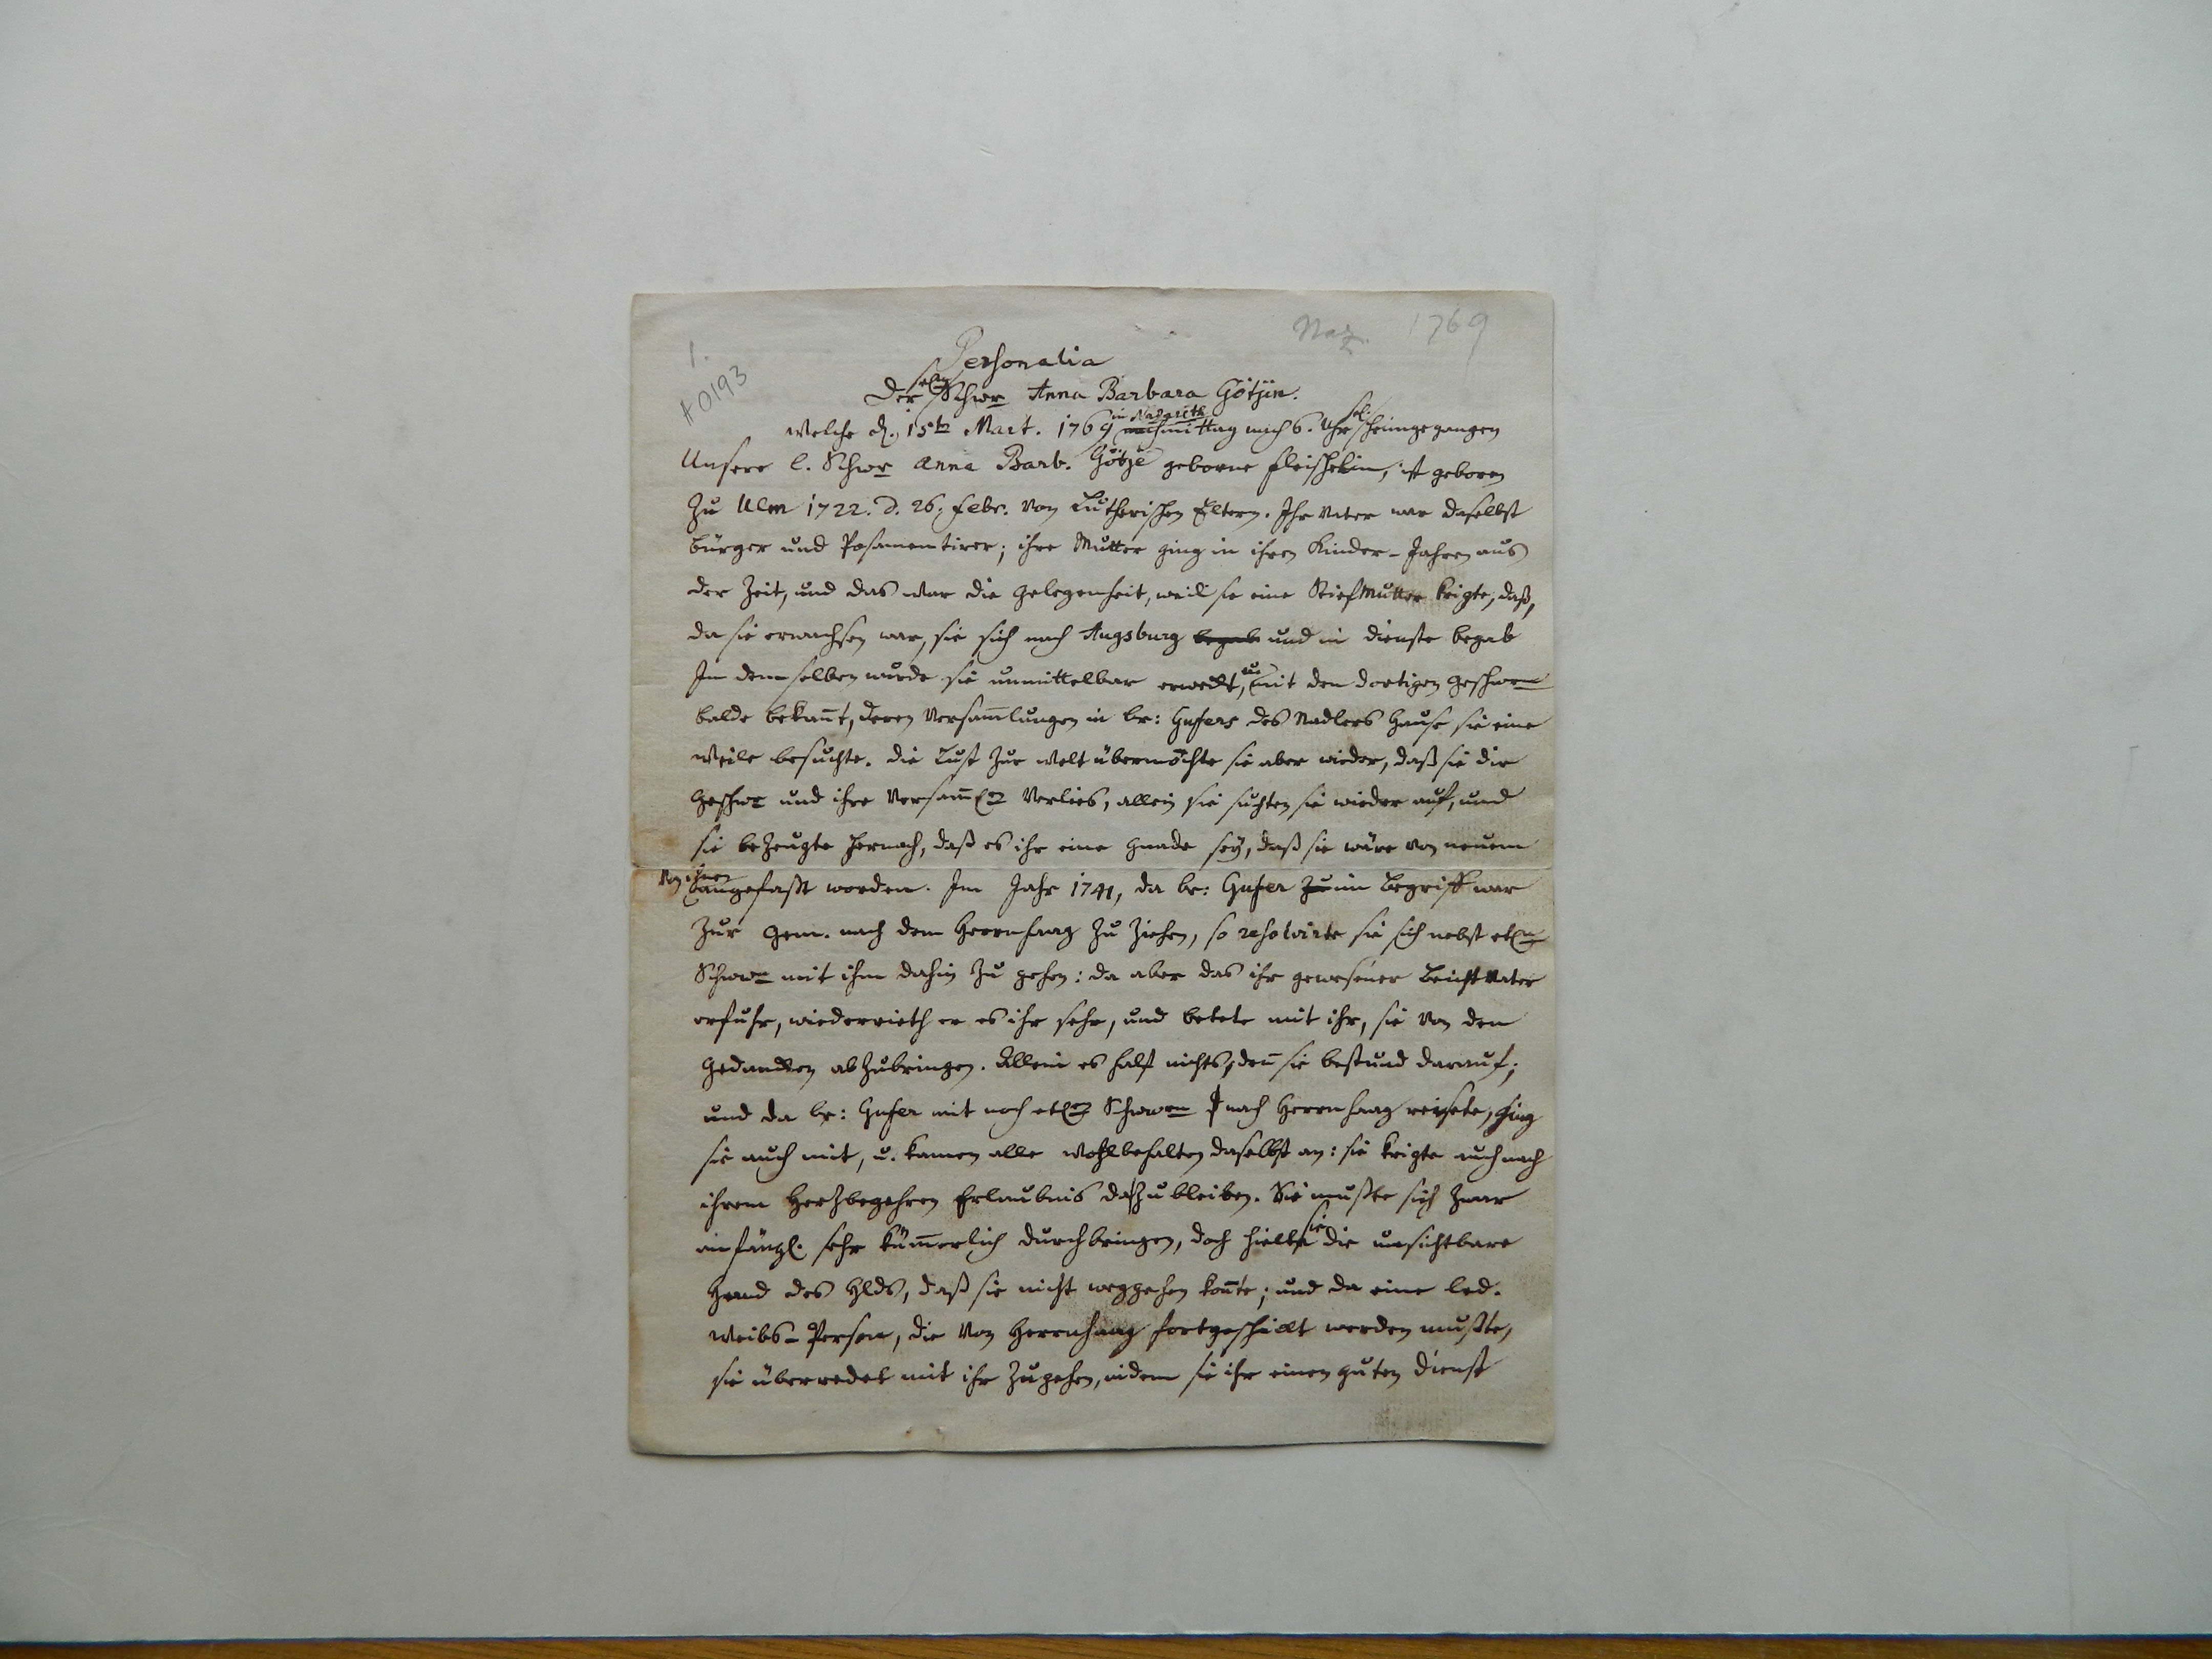 1.
#0193
Naz. 1769
Personalia
der selg Schwr Anna Barbara Götjin.
welche d. 15ten Mart. 1769 in Nazareth nachmittag nach 6. Uhr sel. heimgegangen
Unsere l. Schwr Anna Barb. Götje geborne Fleischekin, ist geboren
zu Ulm 1722. d. 26. Febr. von Lutherischen Eltern. Ihr Vater war daselbst
Bürger und Posamentirer; ihre Mutter ging in ihren Kinder-Jahren aus
der Zeit, und das war die Gelegenheit, weil sie eine Stiefmutter krigte, daß,
da sie erwachsen war, sie sich nach Augsburg begab und in Dienste begab
In demselben wurde sie unmittelbar erweckt, u. mit den dortigen Geschwrn
balde bekañt, deren Versam̃lungen in br: Gufers des Nadlers Hause sie eine
Weile besuchte. Die Lust zur Welt übermochte sie aber wieder, daß sie die
Geschwr und ihre Versam̃len verlies, allein sie suchten sie wieder auf, und
sie bezeugte hernach, daß es ihr eine Gnade sey, daß sie wäre von neuem
von ihnen angefaßt worden. Im Jahr 1741, da br: Gufer zu im Begriff war
zur Gem. nach dem Herrnhaag zu ziehen, so resolvirte sie sich nebst etlen
Schwrn mit ihm dahin zu gehen: da aber das ihr gewesener Beichtvater
erfuhr, wiederrieth er es ihr sehr, und betete mit ihr, sie von den
Gedancken abzubringen. Allein es half nichts, deñ sie bestund darauf;
und da br: Gufer mit noch etlen Schwrn nach Herrnhaag reisete, ging
sie auch mit, u. kamen alle wohlbehalten daselbst an: sie krigte auch nach
ihrem Herzbegehren Erlaubnis da zu bleiben. Sie mußte sich zwar
anfängl. sehr küm̃erlich durchbringen, doch hielt sie die unsichtbare
Hand des Hlds, daß sie nicht weggehen koñte; und da eine led.
Weibs-Person, die von Herrnhaag fortgeschickt werden mußte,
sie überredet mit ihr zugehen, indem sie ihr einen guten Dienst